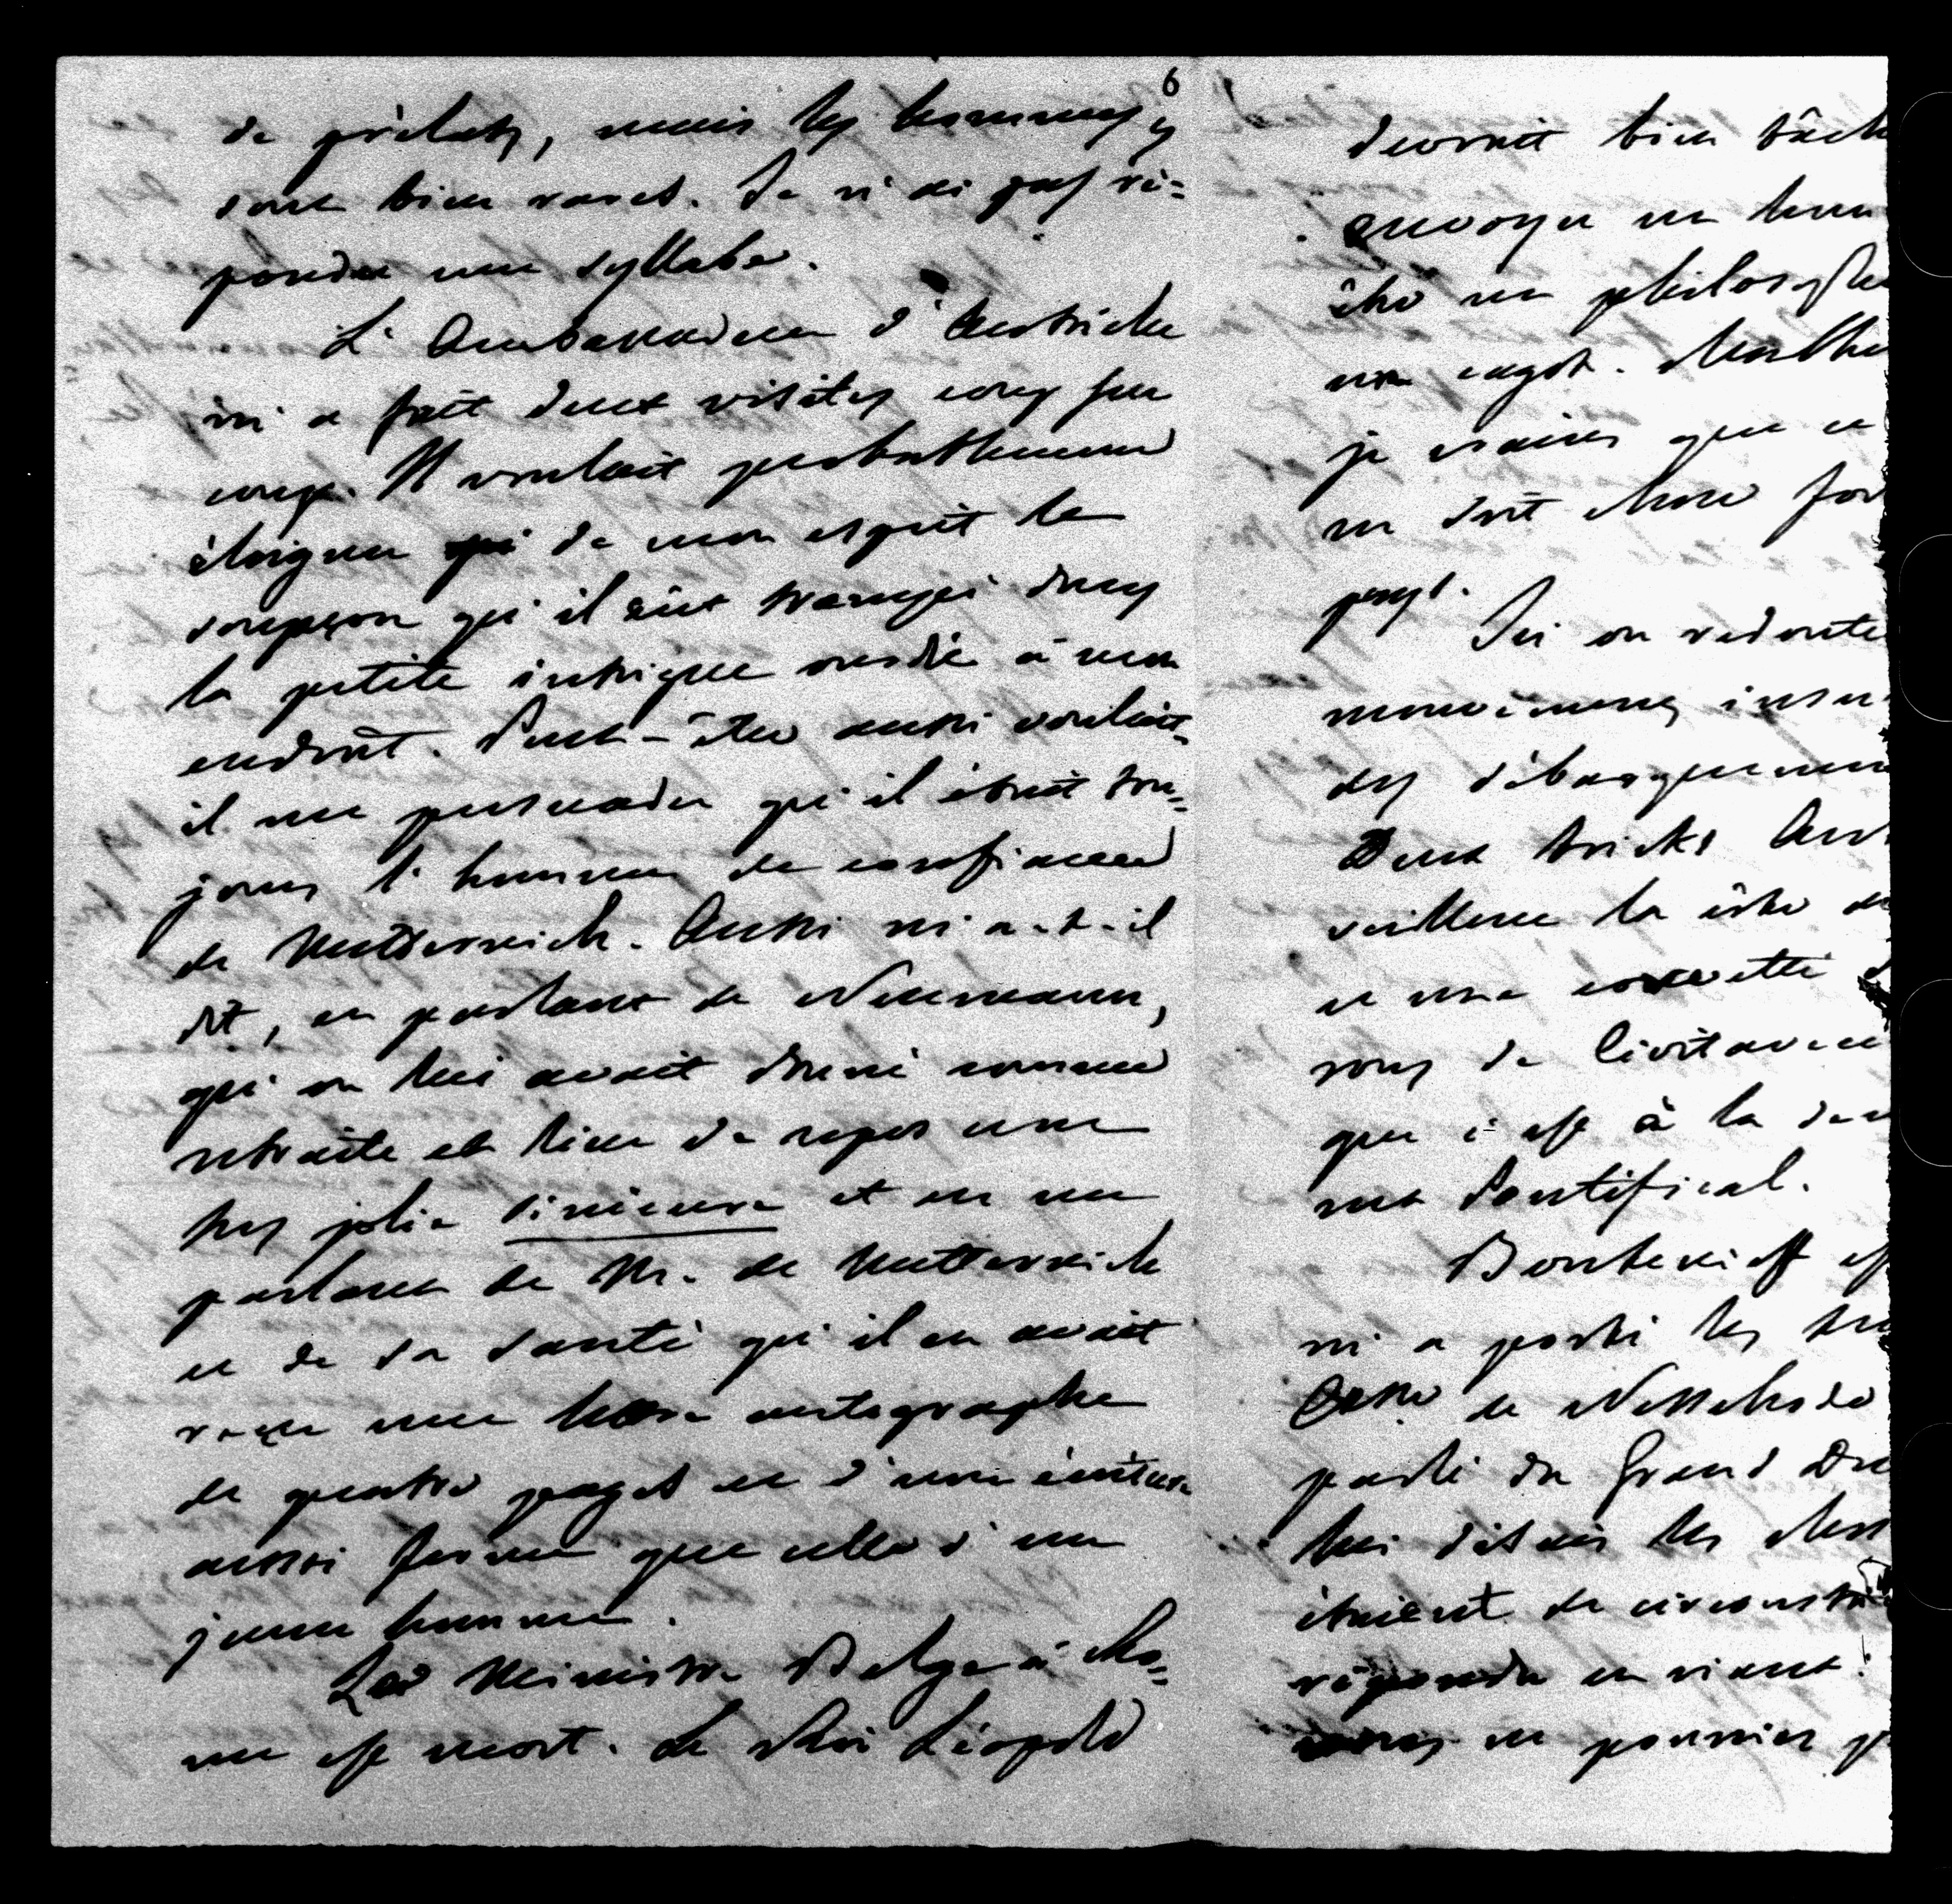 6
de prélats, mais les hommes y
sont bien rares. Je n'ai pas ré=
pondu une syllabe.
L'Ambassadeur d'Autriche
m'a fait deux visites coup sur
coup. Il voulait probablement
éloigner de mon esprit le
soupçon qu'il eût trempé dans
la petite intrigue ourdie à mon
endroit. Peut-être aussi voulait-
il me persuader qu'il était tou=
jours l'homme de confiance
de Metternich. Aussi m'a-t-il
dit, en parlant de Neumann,
qu'on lui avait donné comme
retraite et lieu de repos une
très jolie sinécure et en me
parlant de Mr. de Metternich
et de sa santé qu'il en avait
reçu une lettre autographe
de quatre pages et d'une écriture
aussi ferme que celle d'un
jeune homme.
Le Ministre Belge à Ro=
me est mort. Le Roi Léopold
devrait bien tâch
envoyer un hom
être un philosophe
un cagot. Malhe
je crains que ce
ne soit chose for
pays.
Ici on redoute
mouvements insu
des débarquemen
Deux bricks Aut
veillent la côte de
et une corvette
rons de Civitavecc
que c'est à la dem
ment Pontifical.
Boutenieff es
m'a porté les
Csse de Nesselrode
parlé du Grand Du
lui disais les chos
étaient de circonsta
répondu en riant:
ne pourriez p